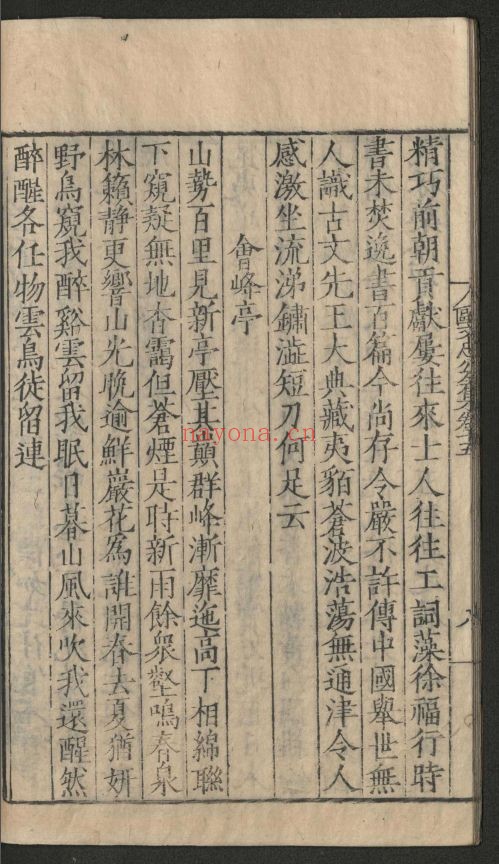 精巧前朝貢獻屢往來士人往往工詞藻徐福行時
書未焚逸書百篇今尚存令嚴不許傳中國舉世無
人識古文先王大典藏夷貊蒼波浩蕩無通津令人
感激坐流涕鏽澁短刀何足云
會峰亭
山勢百里見新亭壓其巔群峰漸靡迤高下相綿聯
下窺疑無地杳靄但蒼煙是時新雨餘衆壑鳴春泉
林籟靜更響山光晚逾鮮巖花為誰開春去夏猶妍
野鳥窺我醉谿雲留我眠日暮山風來吹我還醒然
醉醒各任物雲鳥徒留連
nayona.cn